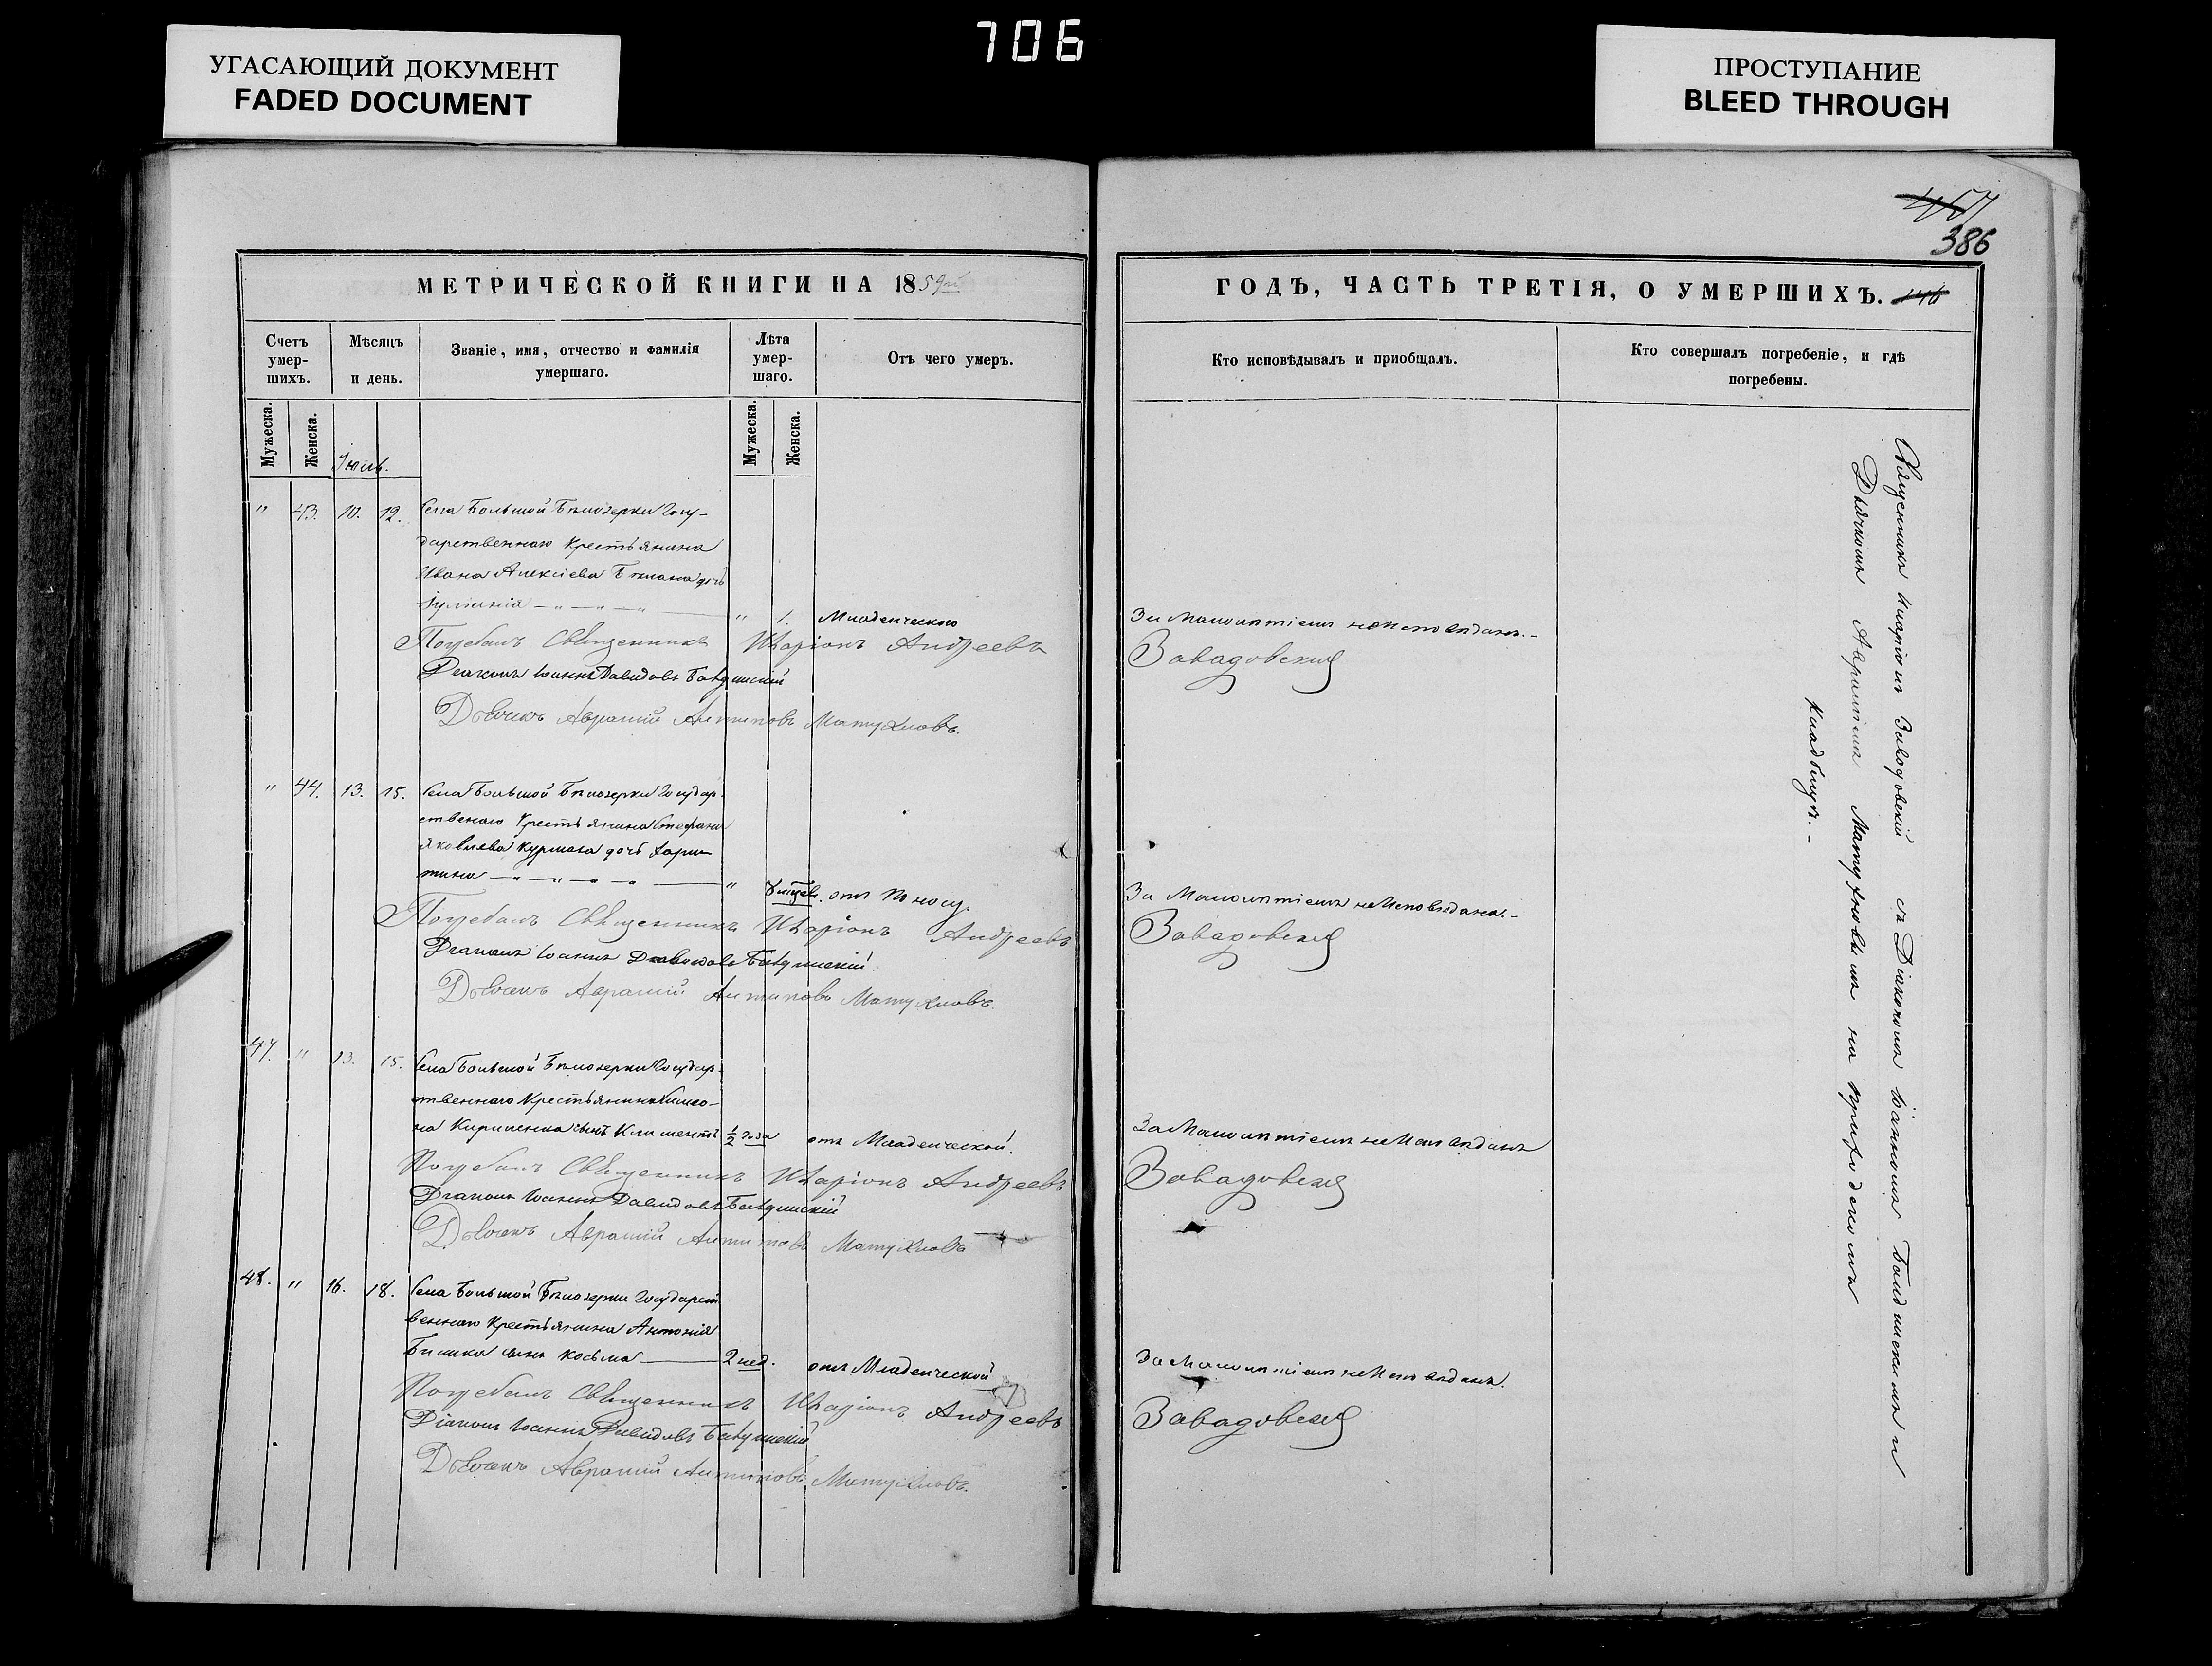 706
УГАСАЮЩИЙ ДОКУМЕНТ
FADED DOCUMENT
ПРОСТУПАНИЕ
BLEED THROUGH
386
МЕТРИЧЕСКОЙ КНИГИ НА 1859й
Счетъ умер-шихъ.
Мѣсяцъ и день.
Званіе, имя, отчество и фамилія умершаго.
Лѣта умер-шаго.
Отъ чего умеръ.
Мужеска. Женска.
Мужеска. Женска.
" 43. 10. 12. Села Большой Бѣлозерки Госу-
дарственнаго Крестьянина
Ивана Алексіева Бѣлана дочь
" 1. Младенческою
Погребалъ Священникъ Иларіонъ Андреевъ
Діаконъ Іоаннъ Давидовъ
Дьячекъ Аврамій Антиповъ Матухновъ.
" 44. 13. 15. Села Большой Бѣлозерки Государ-
ственаго Крестьянина Стефана
Яковлева Курмаза дочь Хари-
тина " от поносу.
Погребалъ Священникъ Иларіонъ Андреевъ
Діаконъ Іоаннъ Давидовъ
Дьячекъ Аврамій Антиповъ Матухновъ.
47. " 13. 15. Села Большой Бѣлозерки Государ-
ственнаго Крестьянина Симео-
на Кириленка сынъ Климентъ 1/2 года отъ Младенческой.
Погребалъ Священникъ Иларіонъ Андреевъ
Діаконъ Іоаннъ Давидовъ
Дьячекъ Аврамій Антиповъ Матухновъ
48. " 16. 18. Села Большой Бѣлозерки Государст
веннаго Крестьянина Антонія
сынъ Косьма 2 нед. отъ Младенческой
Погребалъ Священникъ Иларіонъ Андреевъ
Діаконъ Іоаннъ Давидовъ
Дьячекъ Аврамій Антиповъ Матухновъ.
ГОДЪ, ЧАСТЬ ТРЕТІЯ, О УМЕРШИХЪ. 146
Кто исповѣдывалъ и пріобщалъ.
Кто совершалъ погребеніе, и гдѣ погребены.
За Малолѣтіемъ не Исповѣдана.-
Завадовскій
За Малолѣтіемъ не Исповѣдана.-
Завадовскій
За Малолѣтіемъ не Исповѣданъ
Завадовскій
За Малолѣтіемъ не Исповѣданъ.
Завадовскій
Священникъ Иларіонъ Завадовскій съ Діакономъ Іоанномъ и
Дьячкомъ Авраміемъ Матухновымъ на приходскомъ
Кладбищѣ.-